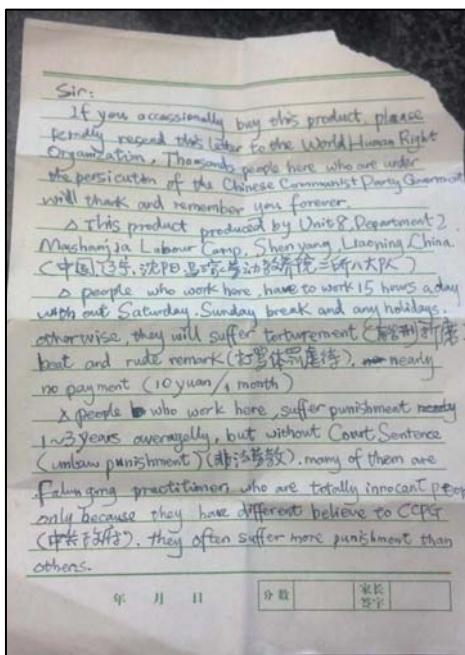 Sir:
If you occassionally buy this product, please
kendly resend this letter to the World Human Right
Organization, Thousands people here who are under
the persicution of the Chinese Communist Party Government
will thank and remember you forever.
△ This product produced by Unit 8, Department 2
Mashanjia Labour Camp, Shen yang, Liaoning, China.
(中国,辽宁,沈阳,马三家劳动教养院二所八大队)
△ people who work here, have to work 15 hours a day
with out Saturday, Sunday break and any holidays.
otherwise, they will suffer torturement (折磨),
beat and rude remark (打骂体罚虐待), nearly
no payment (10 yuan/1 month)
△ people who work here, suffer punishment
1~3 years averagelly, but without Court Sentence
(unlaw punishment) (非法劳教), many of them are
Falun gong practitioner, who are totally innocent people
only because they have different believe to CCPG
(中共政府), they often suffer more punishment than
others.
年 月 日 分数 家长
签字